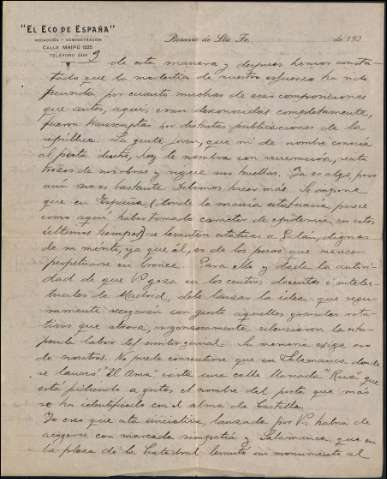 "EL ECO DE ESPAÑA"
REDACCIÓN Y ADMINISTRACIÓN
CALLE MAIPÚ 1035
TELÉFONO
Rosario de Sta. Fe, de 190
9
de esta manera y despues hemos consta-
tado que la molestia de nuestro esfuerzo ha sido
fecunda por cuanto muchas de esas composiciones
que antes, aquí, eran desconocidas completamente,
fueron transcriptas por distintas publicaciones de la
república. La gente joven, que ni de nombre conocía
al poeta ilustre, hoy le nombra con veneración, recita
trozos de sus obras y sigue sus huellas. Ya es algo pero
aun no es bastante. Debemos hacer más. Se impone
que en España, (donde la manía estatuaria parece
como aquí haber tomado caracter de epidemia, en estos
últimos tiempos) se levanten estatuas a Galán, dignas
de su mérito, ya que él, es de los pocos que merecen
perpetuarse en bronce. Para ello y dada la autori-
dad de que V. goza en los centros docentes é intelec-
tuales de Madrid, debe lanzar la idea que segu-
ramente recogerán con gusto aquellos grandes rota-
tivos que ahora, vigorosamente silenciaron la es-
tupenda labor del genial. Su memoria exige eso
de nosotros. No puede consentirse que en Salamanca donde
se lanzó "El Ama" exista una calle llamada "Rúa" que
está pidiendo a gritos el nombre del poeta que más
se ha identificado con el alma de Castilla.
Yo creo que esta iniciativa, lanzada por V., habrá de
acogerse con marcada simpatía y Salamanca, que en
la plaza de la Catedral levantó un monumento al